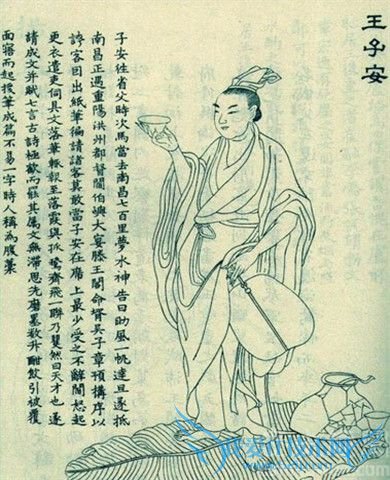 王子安
子安往省父時次馬當去南昌七百里夢水神告曰助風一帆達旦遂抵
南昌正遇重陽洪州都督閻伯嶼大宴滕王閣命壻吳子章預構序以
誇客因出紙筆徧請諸客莫敢當子安在席上最少受之不辭閻怒起
更衣遣吏伺其文落筆輒報至落霞與孤鶩齊飛一聯乃矍然曰天才也遂
請成文并賦七言古詩極歡而罷其属文無滯思先磨墨數升酣飲引被覆
面寤而起援筆成篇不易一字時人稱為腹稾